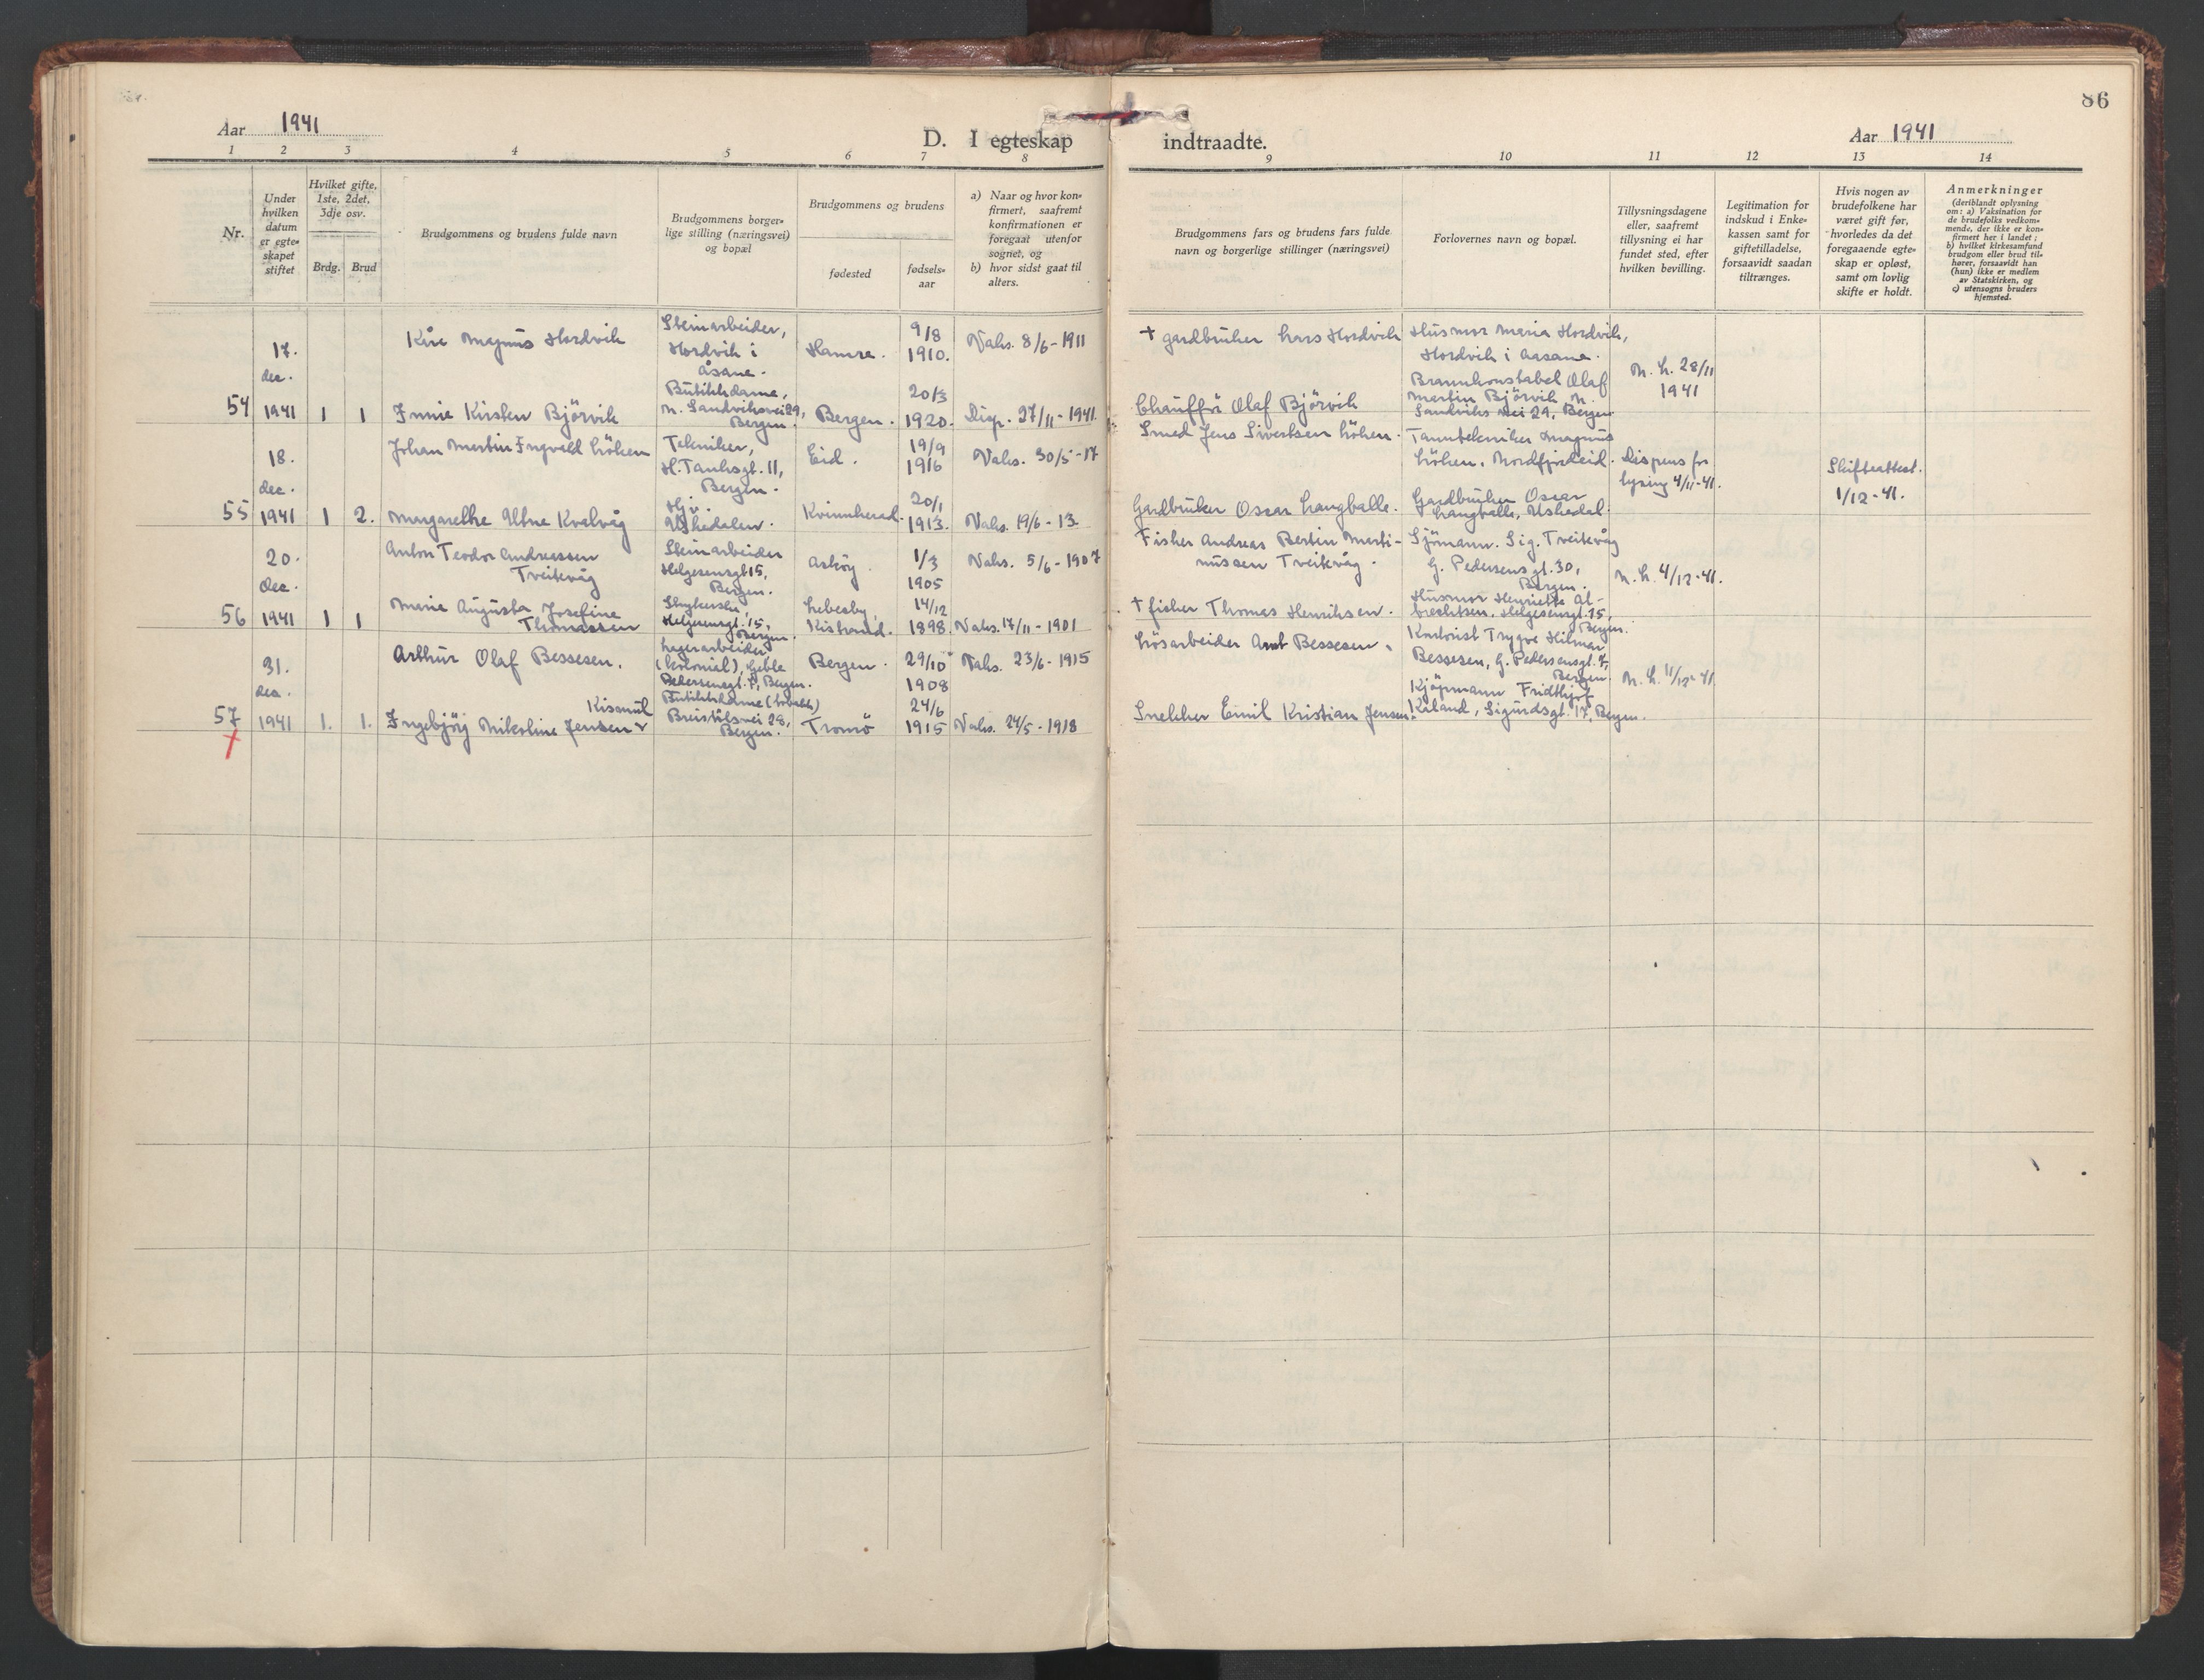 86
Aar 1941
D. I egteskap indtraadte.
Aar 1941
1 2 3 4 5 6 7 8 9 10 11 12 13 14
Nr.
Under
hvilken
datum
er egte-
skapet
stiftet
Hvilket gifte,
1ste, 2det,
3dje osv.
Brdg. Brud
Brudgommens og brudens fulde navn
Brudgommens borger-
lige stilling (næringsvei)
og bopæl
Brudgommens og brudens
fødested
fødsels-
aar
a) Naar og hvor kon-
firmert, saafremt
konfirmationen er
foregaat utenfor
sognet, og
b) hvor sidst gaat til
alters.
Brudgommens fars og brudens fars fulde
navn og borgerlige stillinger (næringsvei)
Forlovernes navn og bopæl.
Tillysningsdagene
eller, saafremt
tillysning ei har
fundet sted, efter
hvilken bevilling.
Legitimation for
indskud i Enke-
kassen samt for
giftetilladelse,
forsaavidt saadan
tiltrænges.
Hvis nogen av
brudefolkene har
været gift før,
hvorledes da det
foregaaende egte-
skap er opløst,
samt om lovlig
skifte er holdt.
Anmerkninger
(deriblandt oplysning
om: a) Vaksination for
de brudefolks vedkom-
mende, der ikke er kon-
firmert her i landet;
b) hvilket kirkesamfund
brudgom eller brud til-
hører, forsaavidt han
(hun) ikke er medlem
av Statskirken, og
c) utensogns bruders
hjemsted.
54
17.
dec.
1941
1 1
Kåre Magnus Hordvik
Steinarbeider,
Hordvik i
Åsane.
Hamre.
9/8
1910.
Vaks. 8/6-1911
+ gardbruker Lars Hordvik
Husmor Maria Hordvik,
Hordvik i Aasane.
N. K. 28/11
1941
Innie Kirsten Björvik
Butikkdame,
N. Sandviksvei 29,
Bergen.
Bergen.
20/3
1920.
Disp. 27/11-1941.
Chauffør Olaf Björvik
Brannkonstabel Olaf
Martin Björvik N.
Sandviks vei 29, Bergen.
55
18.
dec.
1941
1 2.
Johan Martin Ingvald Löken
Tekniker,
H. Tanksgt. 11,
Bergen.
Eid.
19/9
1916
Vaks. 30/5-17
Smed Jens Sivertsen Löken.
Tanntekniker Magnus
Löken, Nordfjordeid.
Dispens fr
lysing 4/11-41.
Skifteattest.
1/12-41.
Margarethe Altne Kvalvåg
Hjv.
Uskedalen.
Kvinnherad.
20/1
1913.
Vaks. 19/6-13.
Gardbruker Oscar Langballe.
Gardbruker Oscar
Langballe, Uskedal.
56
20.
dec.
1941
1 1
Anton Teodor Andreassen
Tveitevåg
Steinarbeider
Helgesensgt 15,
Bergen.
Asköy.
1/3
1905
Vaks. 5/6-1907
Fisker Andreas Bertin Marti-
nussen Tveitevåg.
Sjömann. Sig. Tveitevåg
G. Pedersensgt. 30,
Bergen.
N. K. 4/12-41.
Marie Augusta Josefine
Thomassen
Helgesensgt. 15,
Bergen.
Lebesby,
Kistrand.
14/12
1898.
Vaks. 17/11-1901
+ fisker Thomas Henriksen.
Husmor Henriette Al-
brechtsen, Helgesensgt. 15,
Bergen.
57
31.
dec.
1941
1. 1.
Arthur Olaf Bessesen.
Lagerarbeider
(kolonial), Geble
Pedersensgt. 7, Bergen.
Bergen.
29/10
1908
Vaks. 23/6-1915
Lösarbeider Arnt Bessesen.
Kontorist Trygve Hilmar
Bessesen, G. Pedersensgt. 7,
Bergen.
N. K. 11/12-41
Kismul
Ingebjörg Nikoline Jensen v
Butikkdame (tobakk)
Breistølsvei 28,
Bergen.
Tromsö
24/6
1915
Vaks. 24/5-1918
Snekker Emil Kristian Jensen.
Kjöpmann Fridthjof
Kaland, Sigurdsgt. 17, Bergen.